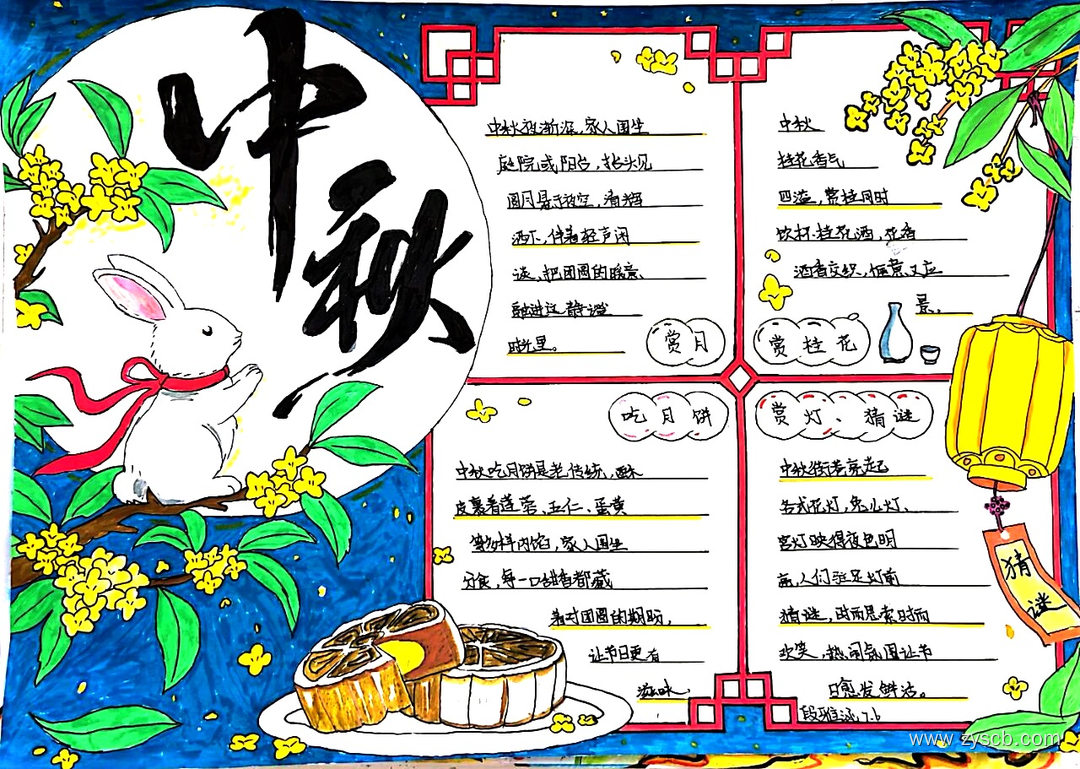 中秋
中秋夜渐深,家人围坐
庭院或阳台,抬头见
圆月悬于夜空,清辉
洒下,伴着轻声闲
谈,把团圆的暖意
融进这静谧
时光里。
赏月
中秋
桂花香气
四溢,赏桂同时
饮杯桂花酒,花香
酒香交织,惬意又应
景。
赏桂花
吃月饼
中秋吃月饼是老传统,酥
皮裹着莲蓉、五仁、蛋黄
等多种内馅,家人围坐
分食,每一口甜香都藏
着对团圆的期盼,
让节日更有
滋味。
赏灯、猜谜
中秋街巷亮起
各式花灯,兔儿灯、
宫灯映得夜色明
亮,人们驻足灯前
猜谜,时而思索时而
欢笑,热闹氛围让节
日愈发鲜活。
猜谜
7.6
www.zyscb.com